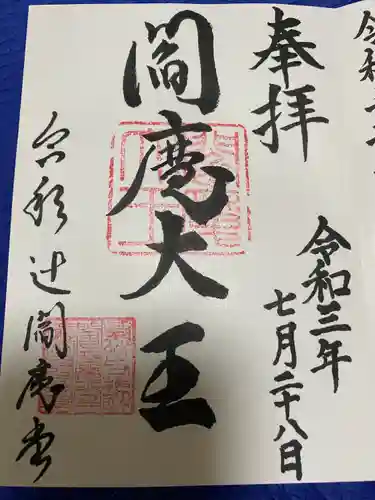 奉拝
令和三年
七月二十八日
閻魔大王
会形辻閻魔堂